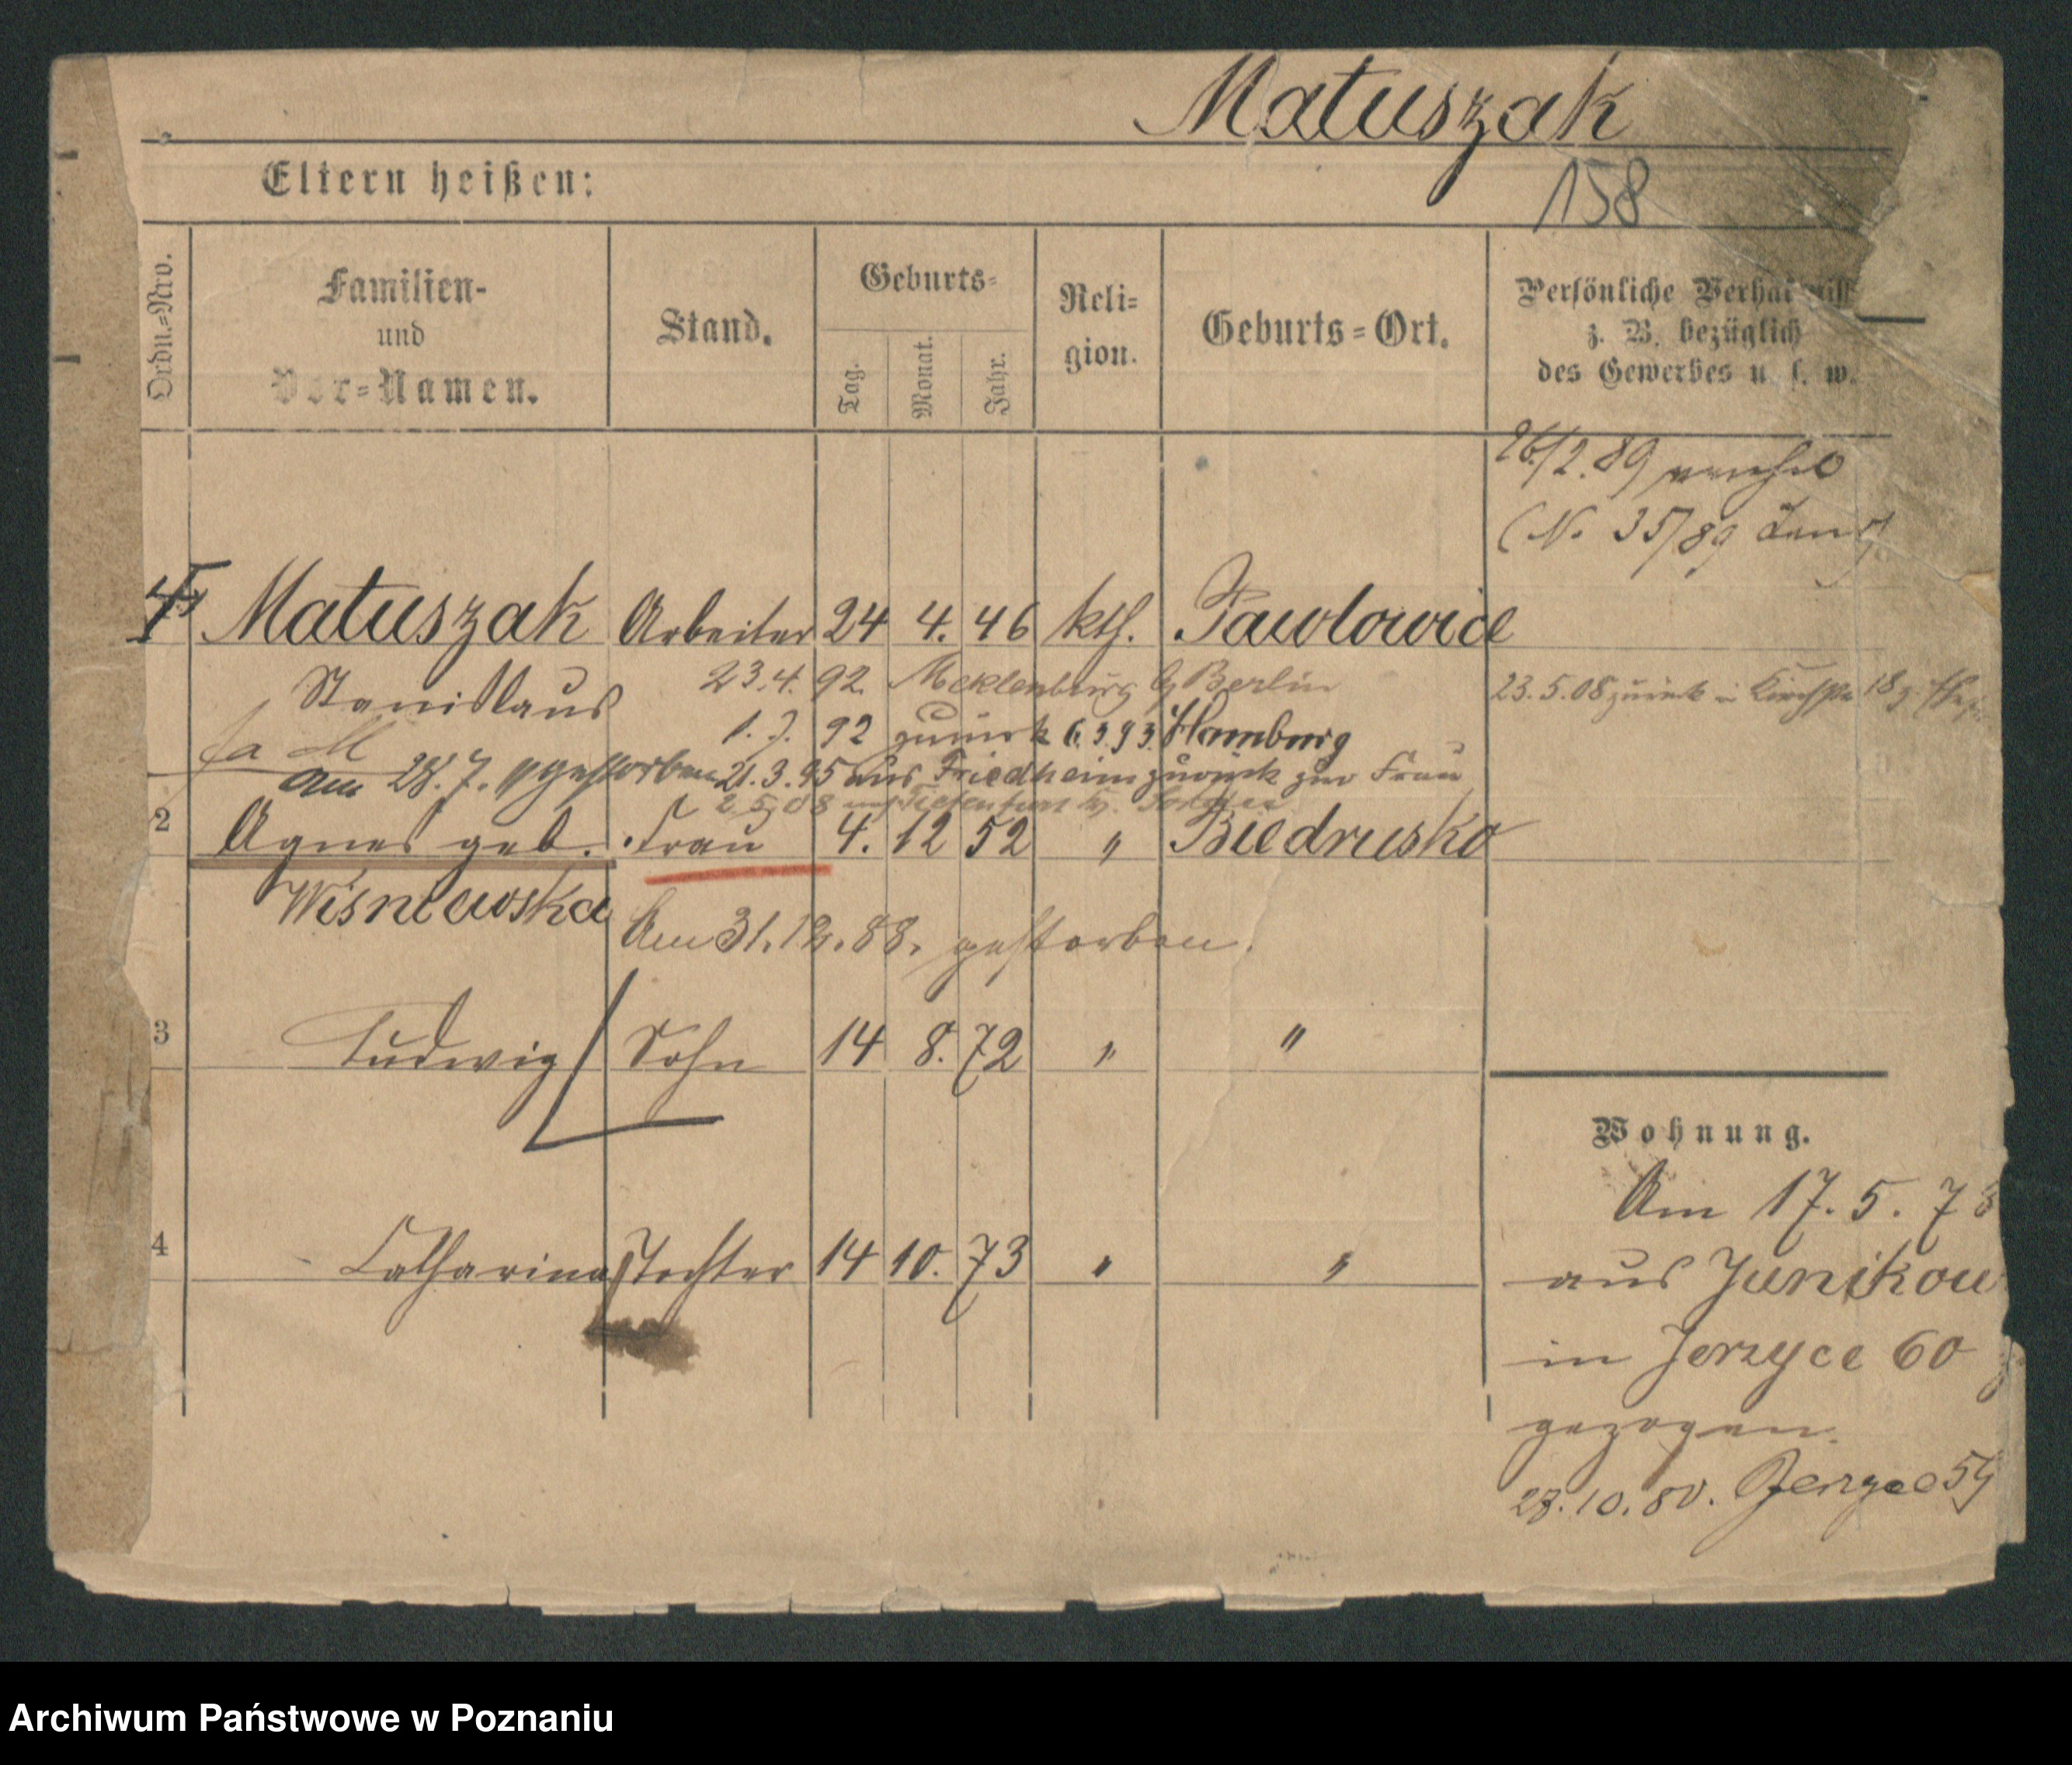 Matuszak
158
Eltern heißen:
Ordn.=Nro.
Familien-
und
Vor=Namen.
Stand.
Geburts=
Tag.
Monat.
Jahr.
Reli=
gion.
Geburts=Ort.
Persönliche
z. B. bezüglich
des Gewerbes u. s. w.
26/2.89
(N. 35/89
Matuszak Arbeiter 24 4. 46 kth. Pawlowice
Stanislaus
23.4. 92. Meklenburg Berlin
23.5.08 zurück
92 zurück 6.3.93. Hamburg
am 28.7. gestorben
21.3.95 aus Friedheim zurück zur Frau
2 Agnes geb. Frau 4. 12 52 " Biedrusko
Wisniewska
Am 31.12.88. gestorben.
3 Ludwig Sohn 14 8. 72 " "
4 Catharina Tochter 14 10. 73 " "
Wohnung.
Am 17. 5. 78
aus Junikow
in Jerzyce 60
gezogen.
28.10.80. Jerzyce
Archiwum Państwowe w Poznaniu